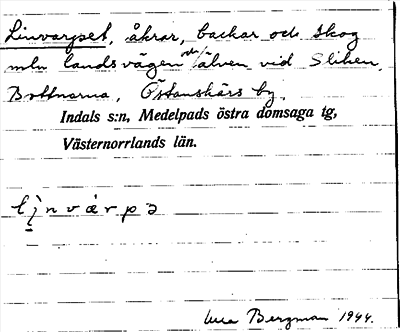 Linvarpet, åkrar, backar och skog
mln landsvägen och älven vid Sliken,
Bottnarna, Östanskärs by.
Indals s:n, Medelpads östra domsaga tg,
Västernorrlands län.
Bergman 1944.